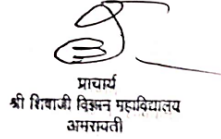 प्राचार्य
श्री शिवाजी विज्ञान महाविद्यालय
अमरावती